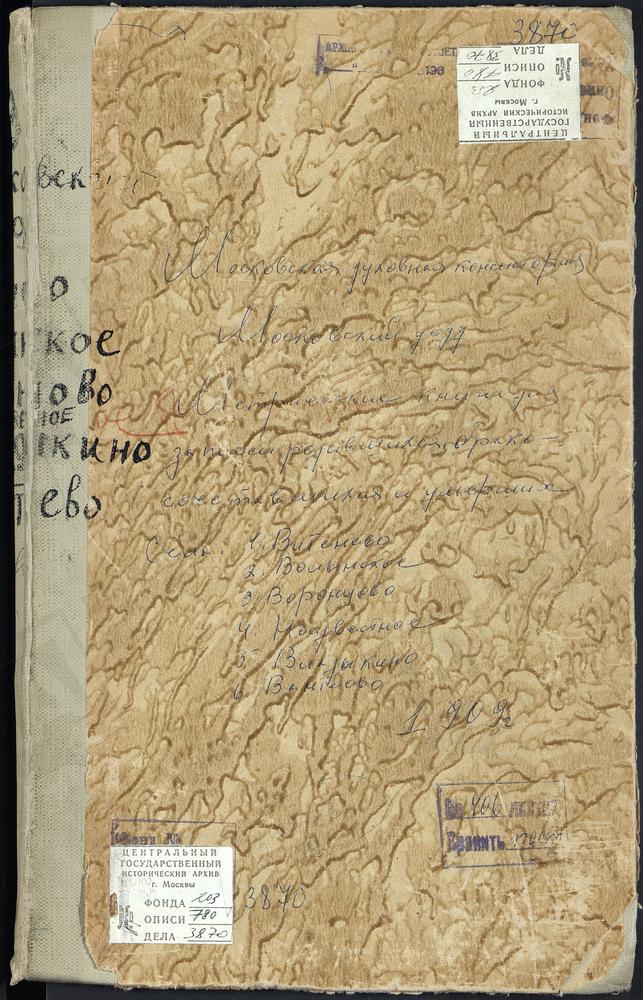 3870
ЦЕНТРАЛЬНЫЙ
ГОСУДАРСТВЕННЫЙ
ИСТОРИЧЕСКИЙ АРХИВ
г. Москвы
ФОНДА 203
ОПИСИ 780
ДЕЛА 3870
Московская духовная консистория
Московский уезд
Метрические книги для
записи родившихся, брако-
сочетавшихся и умерших
Села: 1. Витенево
2. Волынское
3. Воронцово
4. Неизвестное
5. Виндакино
6. Вантеево
1909г
кое
ово
кино
ево
406 листах
Хранить пост
ЦЕНТРАЛЬНЫЙ
ГОСУДАРСТВЕННЫЙ
ИСТОРИЧЕСКИЙ АРХИВ
г. Москвы
ФОНДА 203
ОПИСИ 780
ДЕЛА 3870
3870